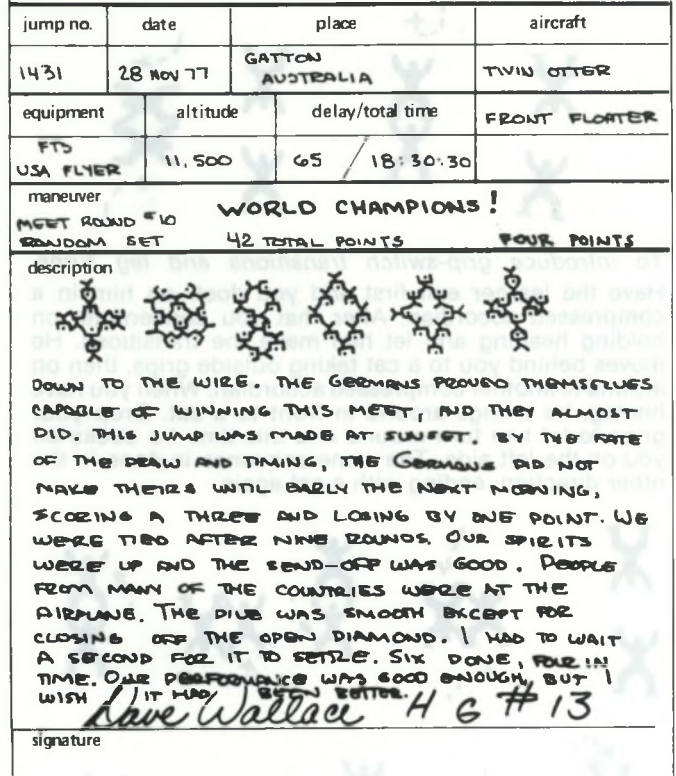 jump no. date place aircraft
1431 28 NOV 77 GATTON AUSTRALIA TWIN OTTER
equipment altitude delay/total time FRONT FLOATER
FTS USA FLYER 11,500 65 / 18:30:30
maneuver
MEET ROUND #10 WORLD CHAMPIONS!
RANDOM SET 42 TOTAL POINTS FOUR POINTS
description
DOWN TO THE WIRE. THE GERMANS PROVED THEMSELVES
CAPABLE OF WINNING THIS MEET, AND THEY ALMOST
DID. OUR JUMP WAS MADE AT SUNSET. BY THE FATE
OF THE DRAW AND TIMING, THE GERMANS DID NOT
MAKE THEIRS UNTIL EARLY THE NEXT MORNING,
SCORING A THREE AND LOSING BY ONE POINT. WE
WERE TIED AFTER NINE ROUNDS. OUR SPIRITS
WERE UP AND THE SEND-OFF WAS GOOD. PEOPLE
FROM MANY OF THE COUNTRIES WERE AT THE
AIRPLANE. THE DIVE WAS SMOOTH EXCEPT FOR
CLOSING OFF THE OPEN DIAMOND. I HAD TO WAIT
A SECOND FOR IT TO SETTLE. SIX DONE, FOUR IN
TIME. OUR PERFORMANCE WAS GOOD ENOUGH, BUT I
WISH IT HAD BEEN BETTER.
Dave Wallace H G #13
signature